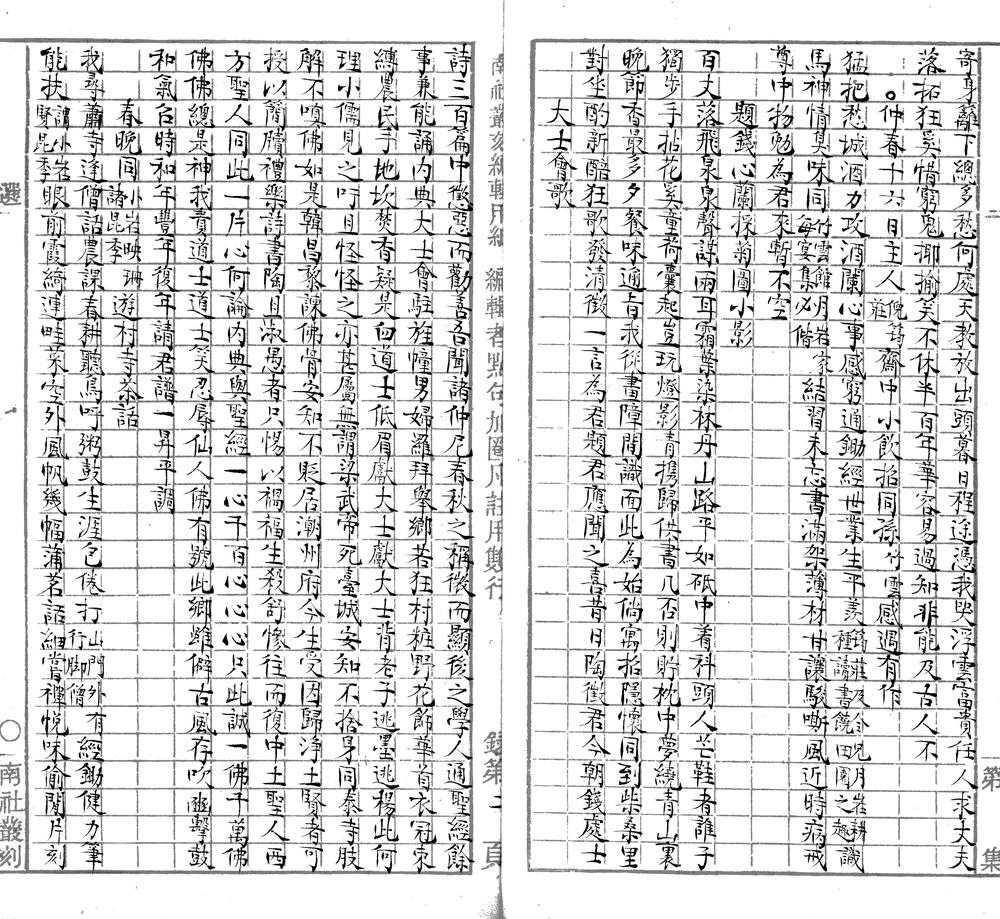 寄身籬下總多愁何處天教放出頭暮日程途憑我哭浮雲富貴任人求丈夫
落拓狂奚情窮鬼揶揄笑不休半百年華容易過知非能及古人不
仲春十六日主人倪筠莊齋中小飲招同孫竹雲感過有作
猛把愁城酒力攻酒闌心事感窮通鋤經世業生平羨筠莊及令兄月岩耕種讀書饒田園之趣識
馬神情臭味同竹雲館月岩家每宴集必偕結習未忘書滿架薄材甘讓駿嘶風近時病戒
尊中物勉為君來暫不空
題錢心蘭採菊圖小影
百丈落飛泉泉聲謀兩耳霜葉染林丹山路平如砥中着科頭人芒鞋者誰子
獨步手拈花奚童荷囊起豈玩燈影青携歸供書几否則貯枕中夢繞青山裏
晚節香最多夕餐味通旨我從畫障間識面此為始倘寓招隱懷同到柴桑里
對坐酌新醅狂歌發清徵一言為君題君應聞之喜昔日陶徵君今朝錢處士
大士會歌
詩三百篇中懲惡而勸善吾聞諸仲尼春秋之稱微而顯後之學人通聖經餘
事兼能誦內典大士會駐旌幢男婦羅拜舉鄉若狂村粧野花飾華首衣冠束
縛農民手地坎焚香疑是血道士低眉獻大士獻大士背老子逃墨逃楊此何
理小儒見之吁且怪怪之亦甚屬無謂梁武帝死臺城安知不捨身同泰寺肢
解不嗔佛如是韓昌黎諫佛骨安知不貶居潮州府今生受因歸淨土賢者可
授以簡牘禮樂詩書陶且淑愚者只惕以禍福生殺舒慘往而復中土聖人西
方聖人同此一片心何論內典與聖經一心千百心心心只此誠一佛千萬佛
佛佛總是神我責道士道士笑忍辱仙人佛有號此鄉雖僻古風存吹豳擊鼓
和氣召時和年豐年復年請君譜一昇平調
春晚同小岩映珊諸昆季遊村寺茶話
我尋蕭寺逢僧話農課春耕聽鳥呼粥鼓生涯包倦打山門外有行脚僧經鋤健力筆
能扶謂小岩賢昆季眼前霞綺連畦菜空外風帆幾幅蒲茗話細嘗禪悅味偷閒片刻
南社叢刻編輯用紙
編輯者點句加圈凡註用雙行
錄第二頁
選
南社叢刻
第
集